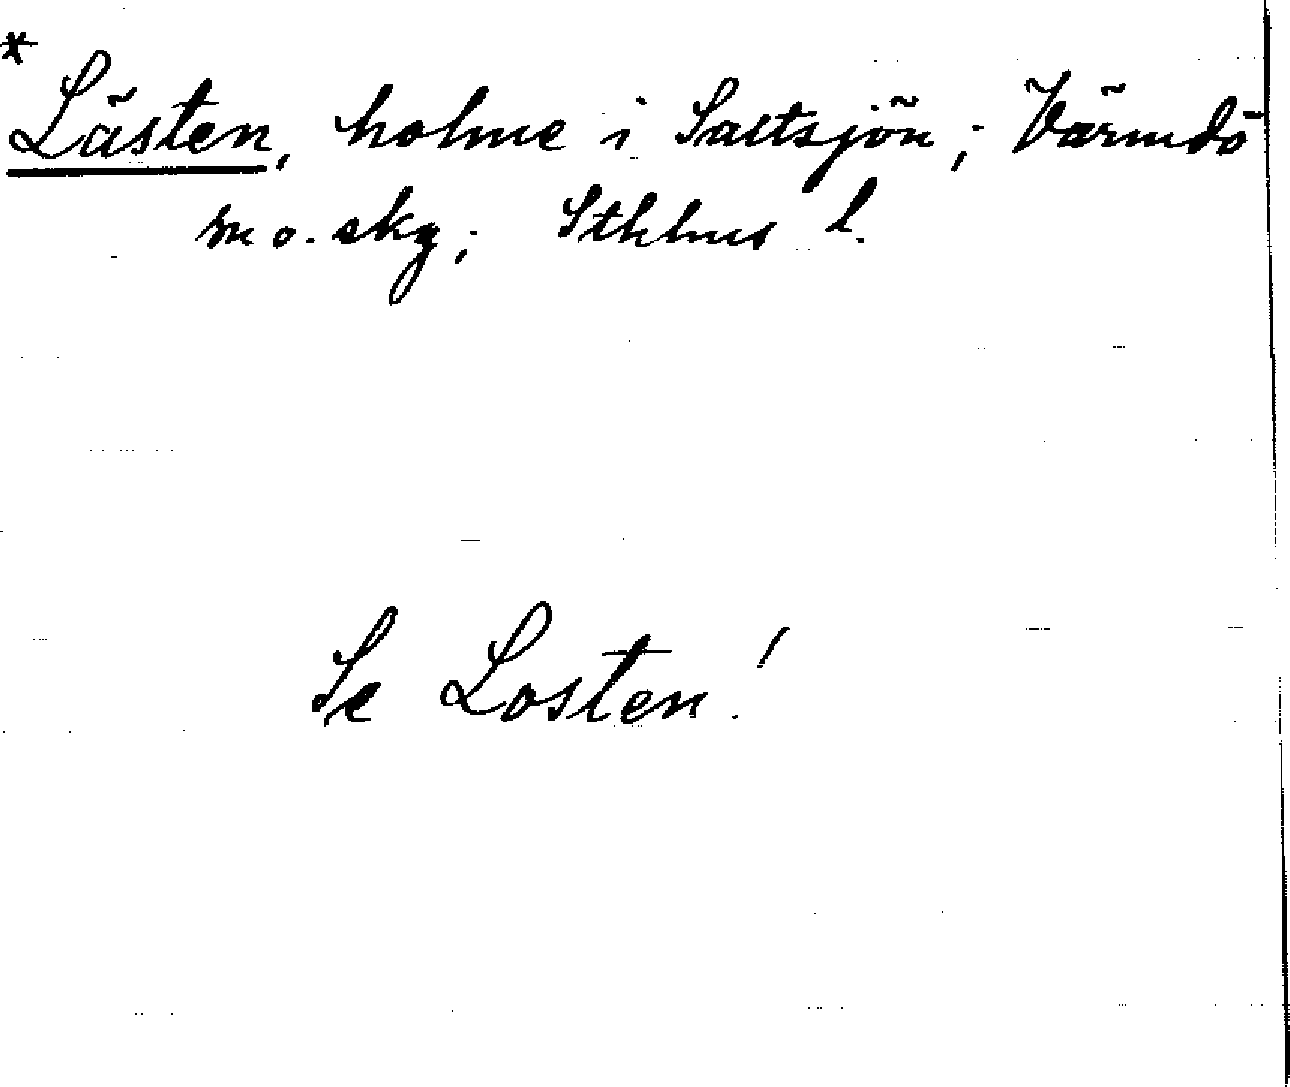 * Lästen, holme i Saltsjön; Värmdö
m o. skg; Sthlms l.
Se Losten!